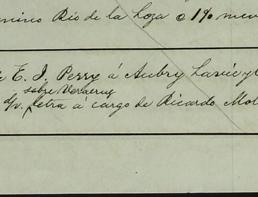 Rio de la Loza @ 1% men
E. J. Perry á Aubry Lavié y
sobre Veracruz
d/v. letra á cargo de Ricardo Mol